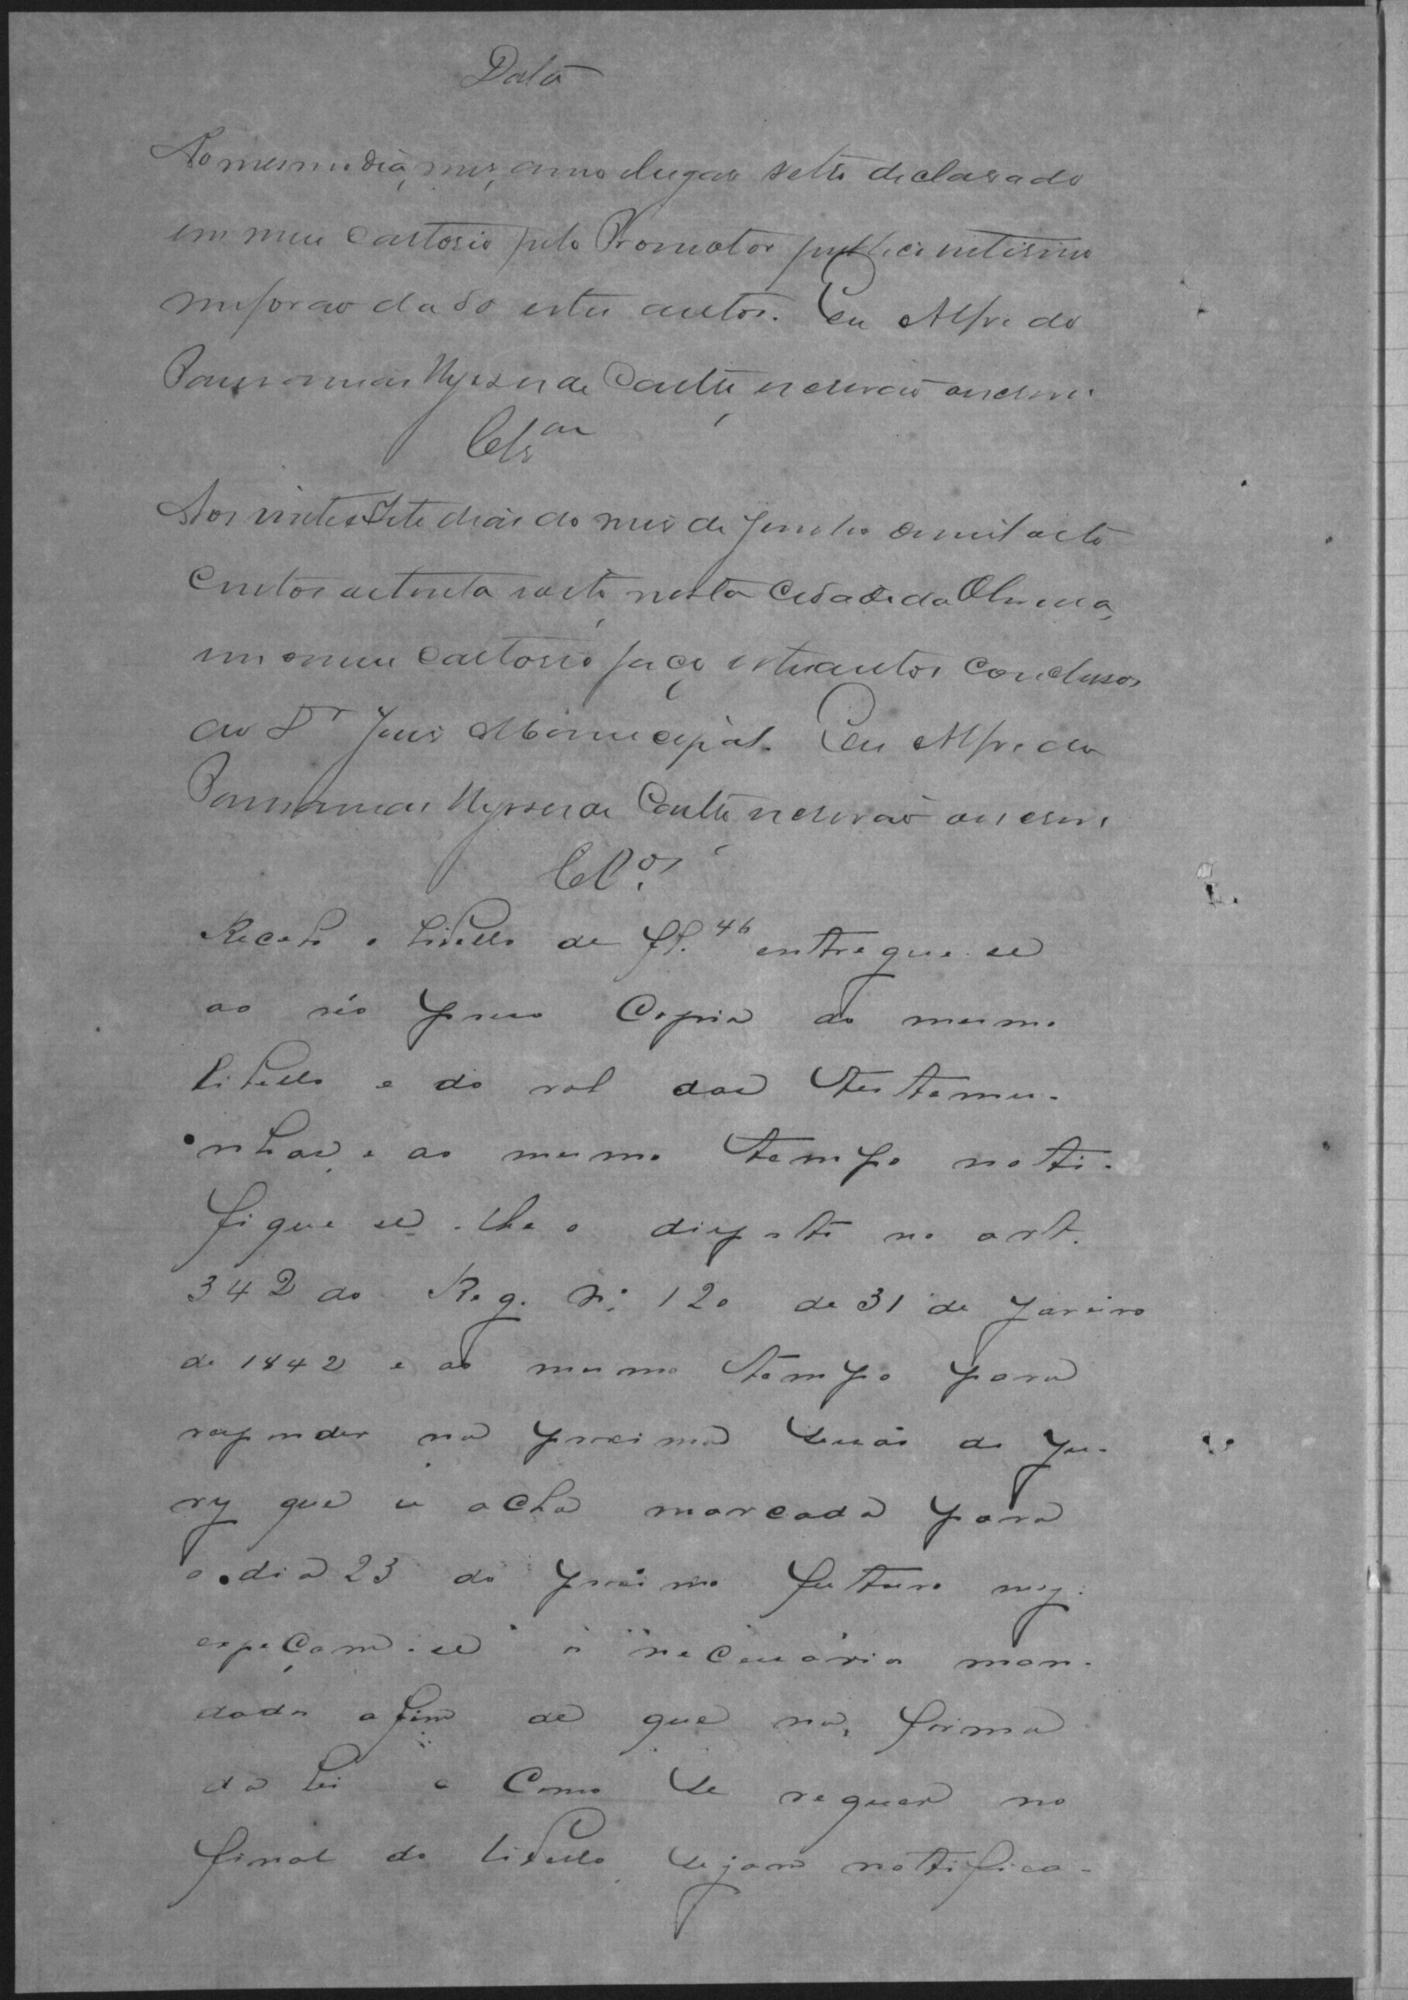 Data
No mesmo dia, mes, anno e lugar retro declarado
em meu cartorio pelo Promotor publico interino
me forão dado estes autos. Eu Alfredo
de Couto escrivão o escrevi
Cls.ão
Aos vinte e sete dias do mes de Junho de mil oito
centos oitenta e sete nesta Cidade da
em o meu cartorio faço estes autos conclusos
ao Dr Juis Municipal. Eu Alfredo
de Couto escrivão o escrevi
Cl.os
Recebo o libello de fl. 46 entregue-se
ao réo preso copia do mesmo
libello e do rol das testemu-
nhas, e ao mesmo tempo noti-
fique se-lhe o disposto no art.
342 do Reg. N.º 120 de 31 de Janeiro
de 1842 e ao mesmo tempo para
responder na proxima sessão do Ju-
ry que se acha marcada para
o dia 23 do proximo futuro mez.
expeçam-se os necessarios man-
dados afim de que na forma
da lei e como se requer no
final do libello sejam notifica-